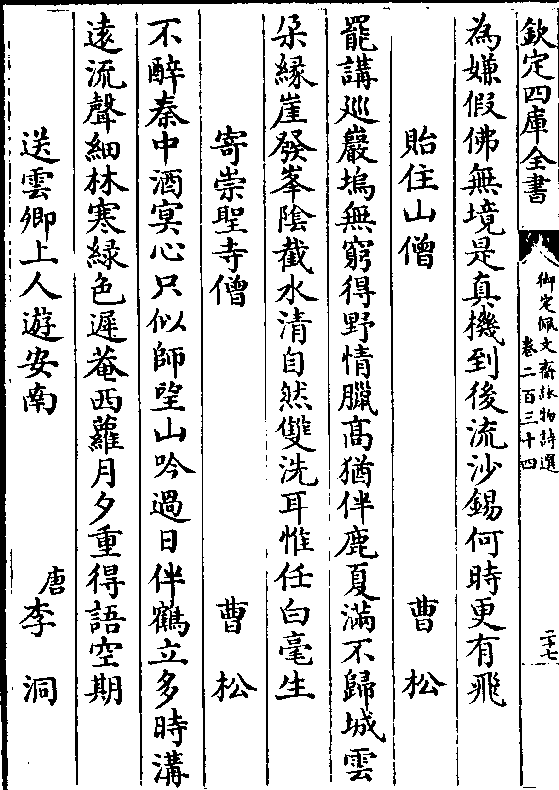 欽定四庫全書
御定佩文齋詠物詩選
卷二百三十四
二十七
為嫌假佛無境是真機到後流沙錫何時更有飛
貽住山僧　曹松
罷講巡巖塢無窮得野情臘髙猶伴鹿夏滿不歸城雲
朶緣崖發峯陰截水清自然雙洗耳惟任白毫生
寄崇聖寺僧　曹松
不醉秦中酒冥心只似師望山吟過日伴鶴立多時溝
逺流聲細林寒緑色遲菴西蘿月夕重得語空期
送雲卿上人遊安南　唐李洞